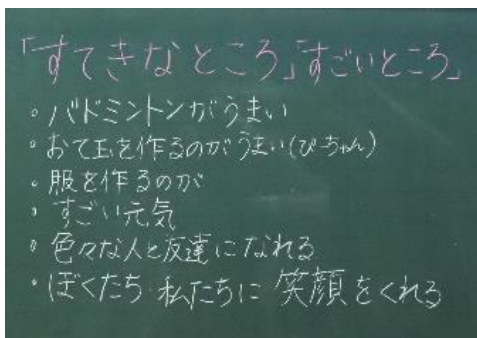 「すてきなところ」「すごいところ」
・バドミントンがうまい
・おて玉を作るのがうまい(ぴーちゃん)
・服を作るのが
・すごい元気
・色々な人と友達になれる
・ぼくたち 私たちに 笑顔をくれる